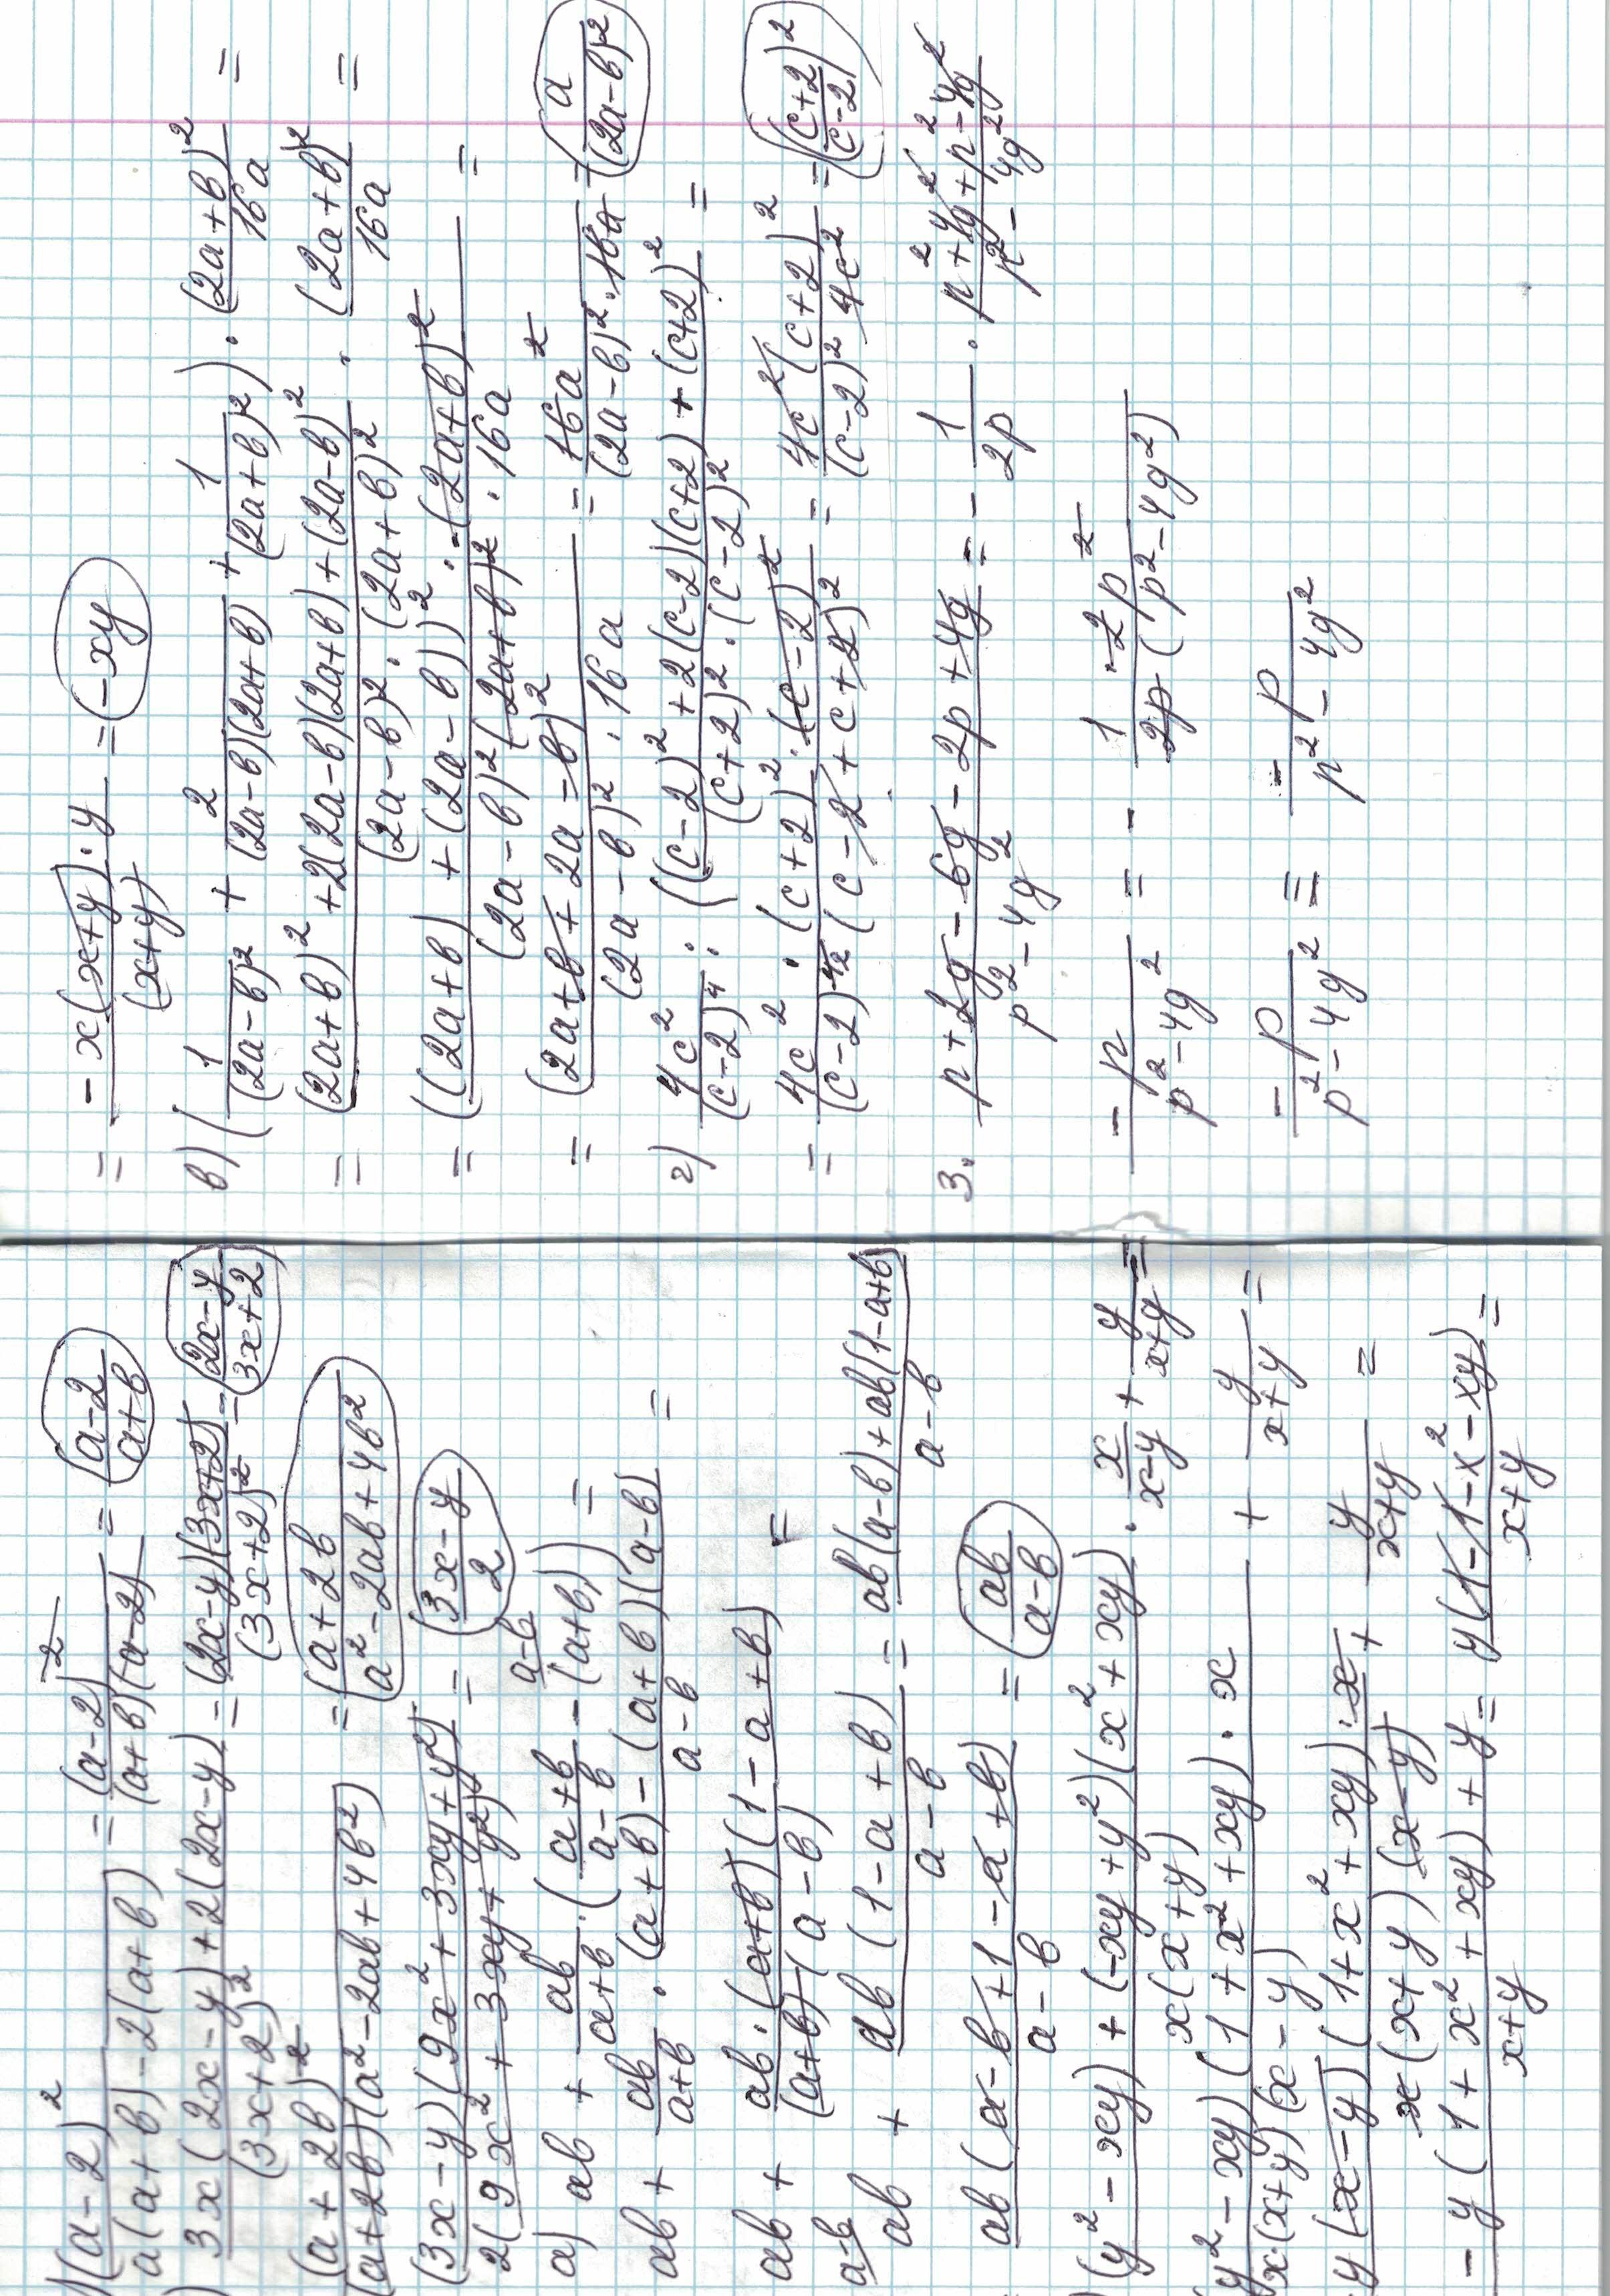 (a-2)² / a(a+b)-2(a+b) = (a-2)² / (a+b)(a-2) = a-2 / a+b
3x(2x-y)+2(2x-y) / (3x+2)² = (2x-y)(3x+2) / (3x+2)² = 2x-y / 3x+2
(a+2b)² / (a+2b)(a²-2ab+4b²) = a+2b / a²-2ab+4b²
(3x-y)(9x²+3xy+y²) / 2(9x²+3xy+y²) = 3x-y / 2
а) ab + ab / a+b · (a+b / a-b - (a+b)) =
ab + ab / a+b · (a+b)-(a+b)(a-b) / a-b =
ab + ab·(a+b)(1-a+b) / (a+b)(a-b) =
ab + ab(1-a+b) / a-b = ab(a-b)+ab(1-a+b) / a-b
ab(a-b+1-a+b) / a-b = ab / a-b
(y²-xy)+(-xy+y²)(x²+xy) / x(x+y) · x / x-y + y / x+y =
y²-xy)(1+x²+xy)·x / x·(x+y)(x-y) + y / x+y =
y(x-y)(1+x²+xy)·x / x(x+y)(x-y) + y / x+y =
-y(1+x²+xy)+y / x+y = y(1-1-x²-xy) / x+y =
= -x(x+y)·y / (x+y) = -xy
в) (1 / (2a-b)² + 2 / (2a-b)(2a+b) + 1 / (2a+b)²) · (2a+b)² / 16a =
= (2a+b)²+2(2a-b)(2a+b)+(2a-b)² / (2a-b)²·(2a+b)² · (2a+b)² / 16a =
= ((2a+b)+(2a-b))²·(2a+b)² / (2a-b)²(2a+b)²·16a =
= (2a+b+2a-b)² / (2a-b)²·16a = 16a² / (2a-b)²·16a = a / (2a-b)²
г) 4c² / (c-2)⁴ : ((c-2)²+2(c-2)(c+2)+(c+2)² / (c+2)²·(c-2)² =
= 4c²·(c+2)²·(c-2)² / (c-2)⁴(c-2+c+2)² = 4c²(c+2)² / (c-2)²4c² = (c+2 / c-2)²
3. p+2g-6g-2p+4g / p²-4g² = - 1 / 2p · p²+4g²+p²-4g² / p²-4g²
-p / p²-4g² = - 1·2p² / 2p(p²-4g²)
-p / p²-4g² = -p / p²-4g²